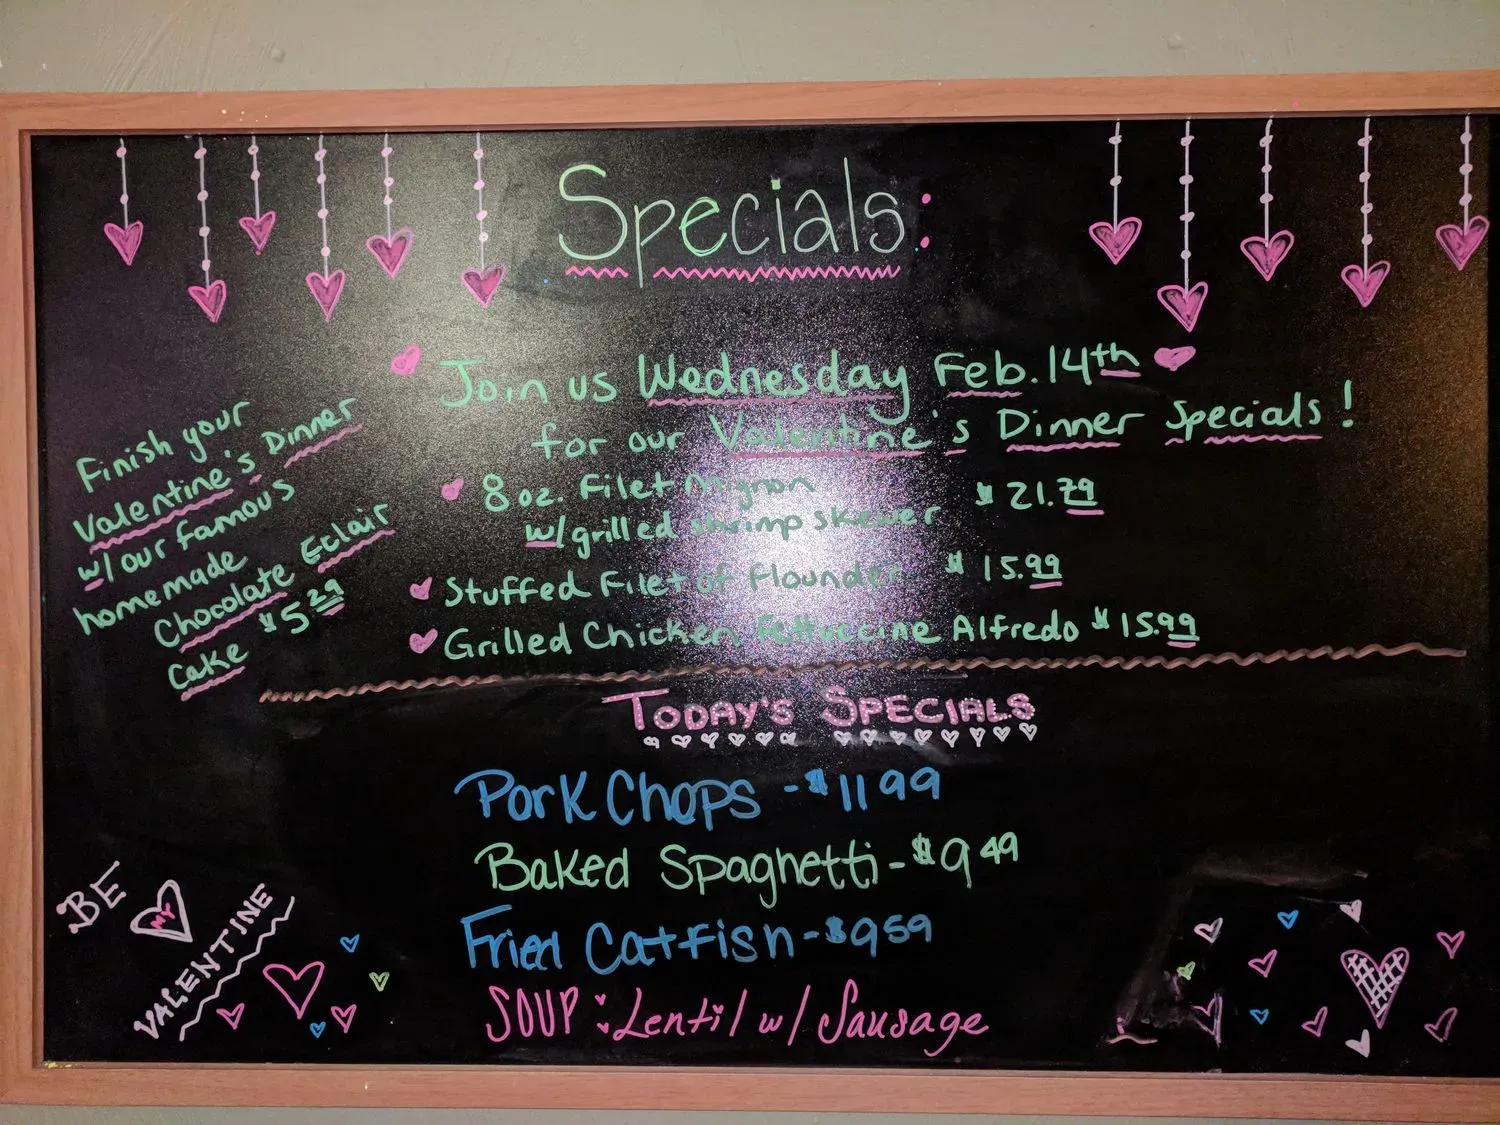 Specials:
Join us Wednesday Feb. 14th
for our Valentine's Dinner Specials!
8 oz. Filet Mignon $21.79
w/grilled shrimp skewer
Stuffed Filet of Flounder $15.99
Grilled Chicken Fettuccine Alfredo $15.99
Finish your
Valentine's Dinner
w/our famous
homemade
Chocolate Eclair
Cake $5.29
Today's Specials
Pork Chops - $11 99
Baked Spaghetti - $9 49
Fried Catfish - $9 59
SOUP: Lentil w/ Sausage
BE
MY
VALENTINE